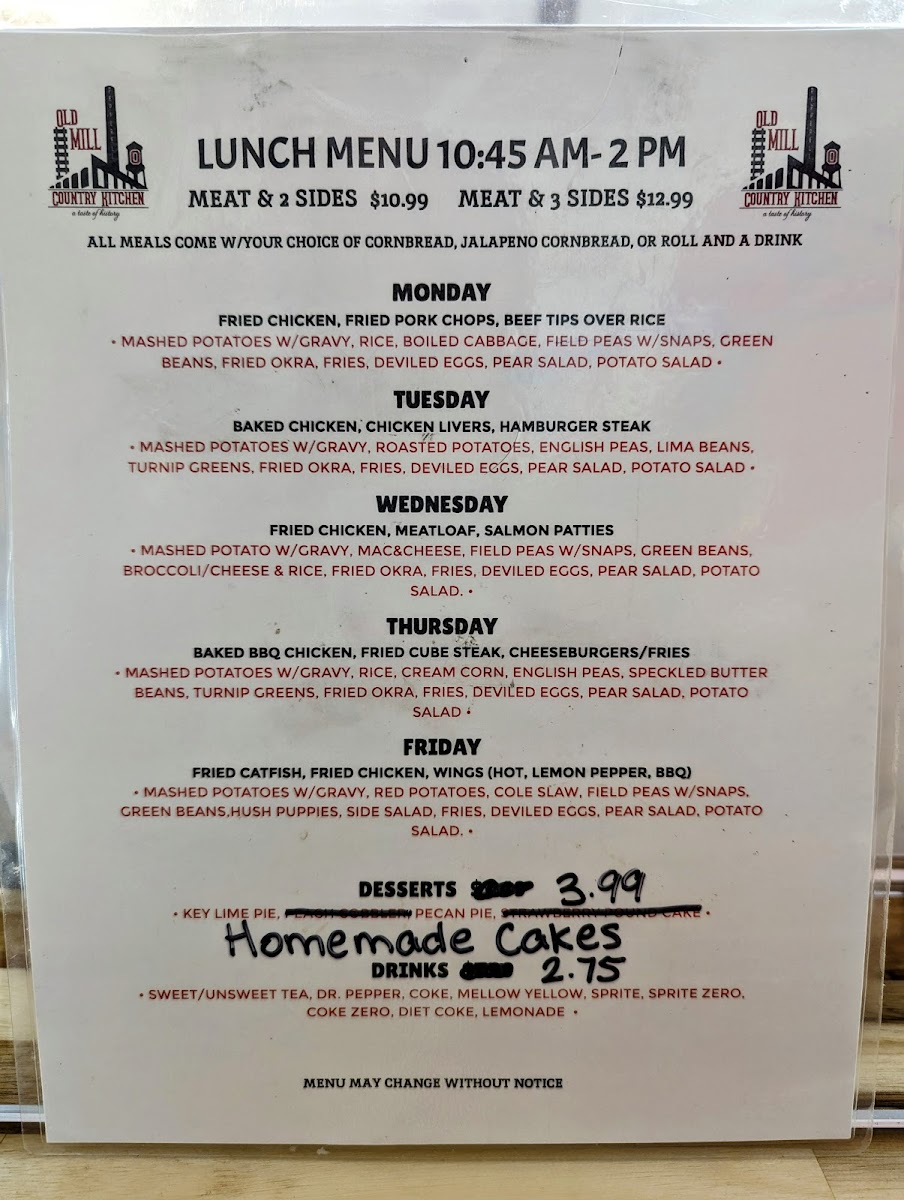 OLD MILL COUNTRY KITCHEN
a taste of history
OLD MILL COUNTRY KITCHEN
a taste of history
LUNCH MENU 10:45 AM- 2 PM
MEAT & 2 SIDES $10.99 MEAT & 3 SIDES $12.99
ALL MEALS COME W/YOUR CHOICE OF CORNBREAD, JALAPENO CORNBREAD, OR ROLL AND A DRINK
MONDAY
FRIED CHICKEN, FRIED PORK CHOPS, BEEF TIPS OVER RICE
• MASHED POTATOES W/GRAVY, RICE, BOILED CABBAGE, FIELD PEAS W/SNAPS, GREEN
BEANS, FRIED OKRA, FRIES, DEVILED EGGS, PEAR SALAD, POTATO SALAD •
TUESDAY
BAKED CHICKEN, CHICKEN LIVERS, HAMBURGER STEAK
• MASHED POTATOES W/GRAVY, ROASTED POTATOES, ENGLISH PEAS, LIMA BEANS,
TURNIP GREENS, FRIED OKRA, FRIES, DEVILED EGGS, PEAR SALAD, POTATO SALAD •
WEDNESDAY
FRIED CHICKEN, MEATLOAF, SALMON PATTIES
• MASHED POTATO W/GRAVY, MAC&CHEESE, FIELD PEAS W/SNAPS, GREEN BEANS,
BROCCOLI/CHEESE & RICE, FRIED OKRA, FRIES, DEVILED EGGS, PEAR SALAD, POTATO
SALAD. •
THURSDAY
BAKED BBQ CHICKEN, FRIED CUBE STEAK, CHEESEBURGERS/FRIES
• MASHED POTATOES W/GRAVY, RICE, CREAM CORN, ENGLISH PEAS, SPECKLED BUTTER
BEANS, TURNIP GREENS, FRIED OKRA, FRIES, DEVILED EGGS, PEAR SALAD, POTATO
SALAD •
FRIDAY
FRIED CATFISH, FRIED CHICKEN, WINGS (HOT, LEMON PEPPER, BBQ)
• MASHED POTATOES W/GRAVY, RED POTATOES, COLE SLAW, FIELD PEAS W/SNAPS,
GREEN BEANS,HUSH PUPPIES, SIDE SALAD, FRIES, DEVILED EGGS, PEAR SALAD, POTATO
SALAD. •
DESSERTS 3.99
• KEY LIME PIE, PEACH COBBLER, PECAN PIE, STRAWBERRY POUND CAKE •
Homemade Cakes
DRINKS 2.75
• SWEET/UNSWEET TEA, DR. PEPPER, COKE, MELLOW YELLOW, SPRITE, SPRITE ZERO,
COKE ZERO, DIET COKE, LEMONADE •
MENU MAY CHANGE WITHOUT NOTICE